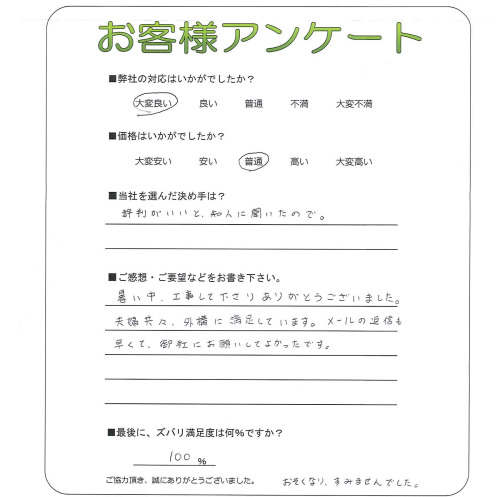 お客様アンケート
■弊社の対応はいかがでしたか?
大変良い 良い 普通 不満 大変不満
■価格はいかがでしたか?
大変安い 安い 普通 高い 大変高い
■当社を選んだ決め手は?
評判がいいと、知人に聞いたので。
■ご感想・ご要望などをお書き下さい。
暑い中、工事して下さりありがとうございました。
夫婦共々、外構に満足しています。メールの返信も
早くて、御社にお願いしてよかったです。
■最後に、ズバリ満足度は何%ですか?
100 %
ご協力頂き、誠にありがとうございました。 おそくなり、すみませんでした。